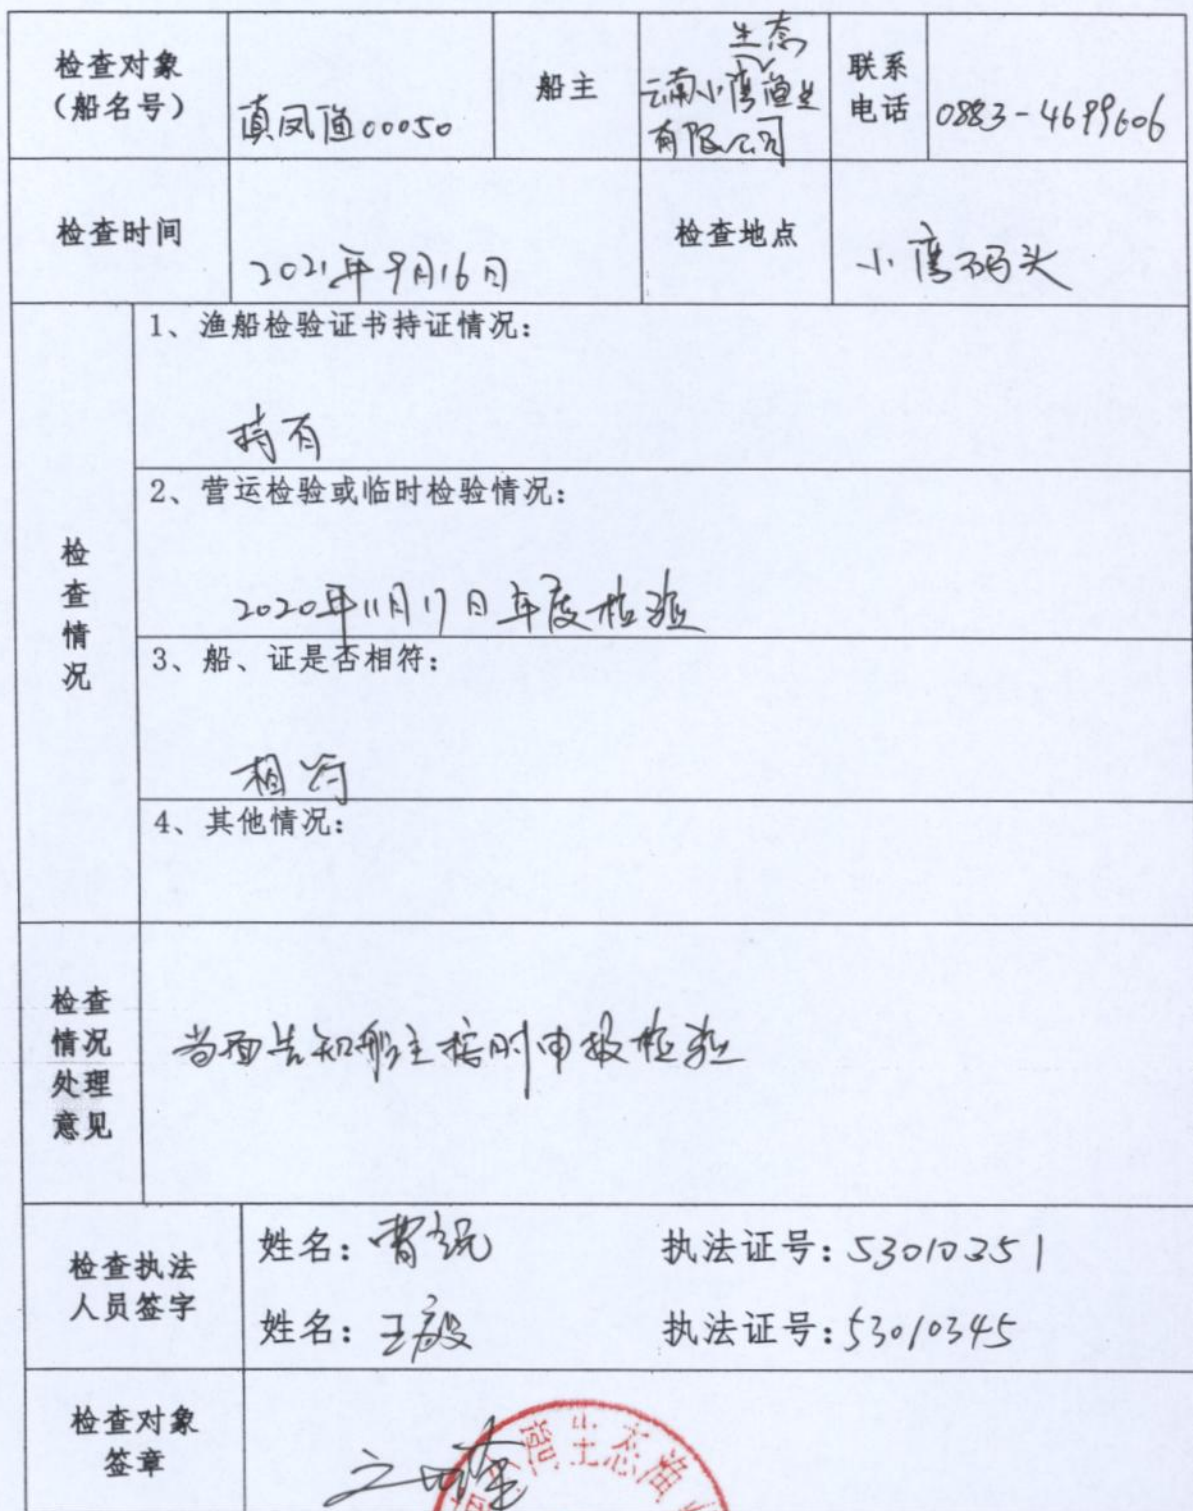 检查对象
（船名号）
滇凤渔00050
船主
生态
云南小湾渔业
有限公司
联系
电话
0883-4699606
检查时间
2021年9月16日
检查地点
小湾码头
检查情况
1、渔船检验证书持证情况：
持有
2、营运检验或临时检验情况：
2020年11月17日年度检验
3、船、证是否相符：
相符
4、其他情况：
检查
情况
处理
意见
当面告知船主按时申报检验
检查执法
人员签字
姓名：曹
执法证号：53010351
姓名：王毅
执法证号：53010345
检查对象
签章
湾生态渔